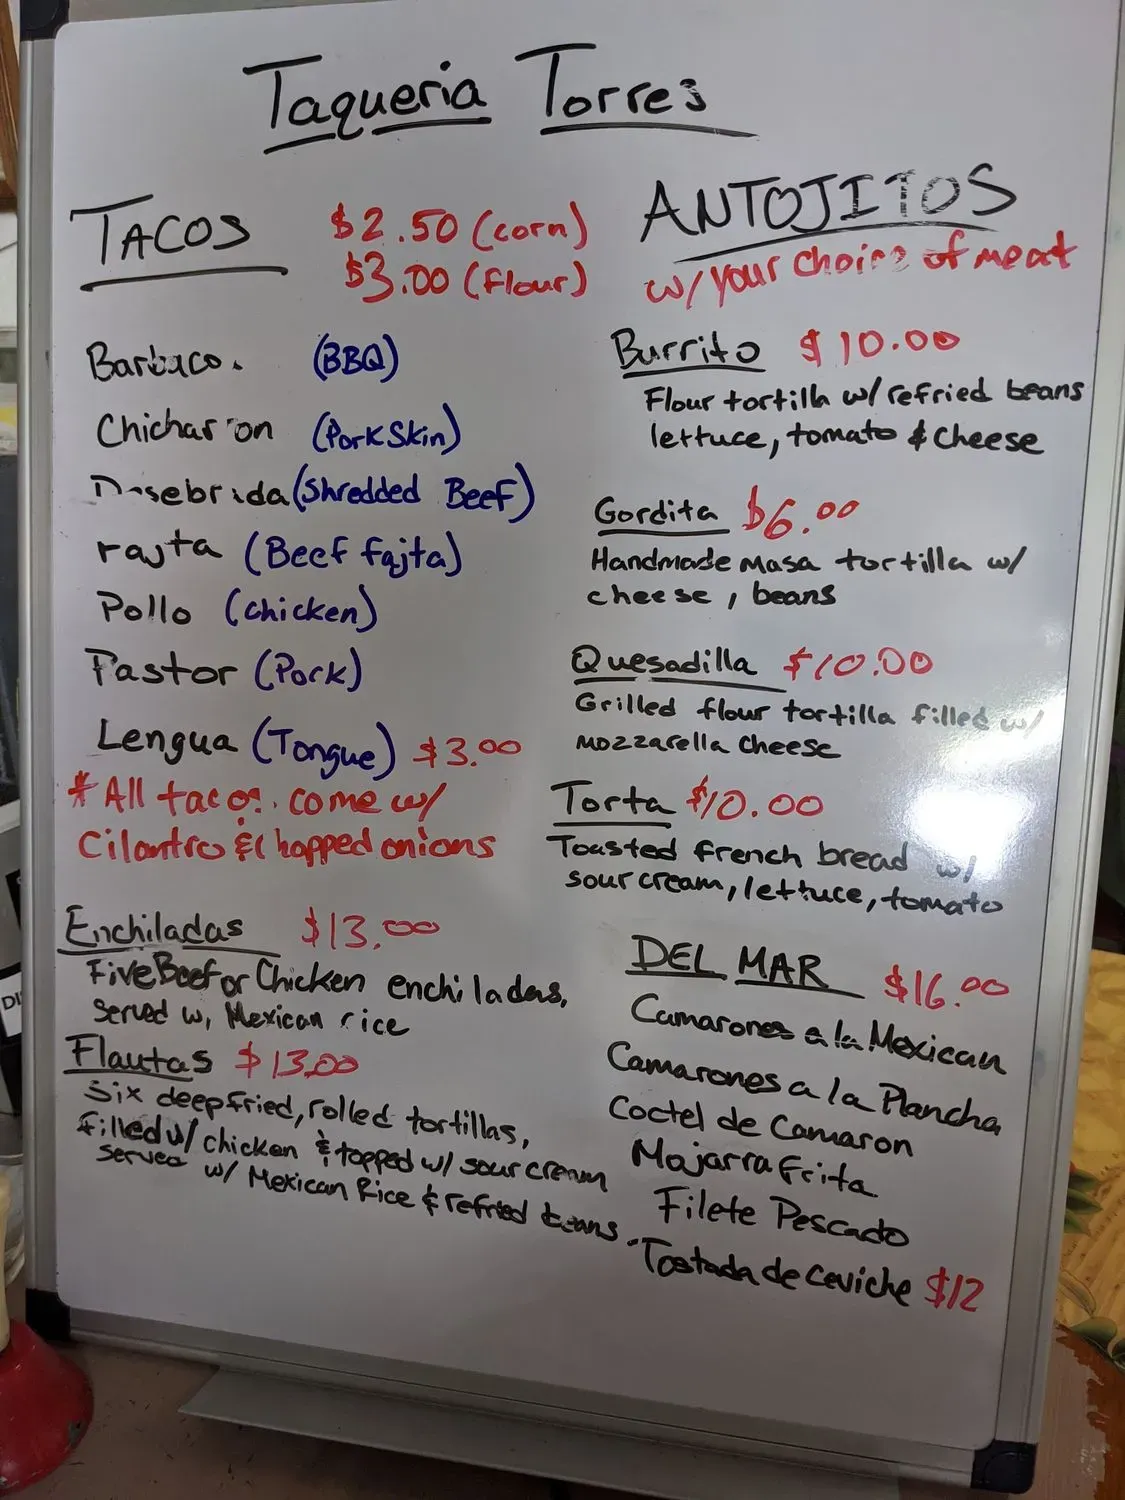 Taqueria Torres
TACOS $2.50 (corn)
$3.00 (flour)
Barbaco. (BBQ)
Chichar on (Pork Skin)
(Shredded Beef)
Fajta (Beef fajta)
Pollo (Chicken)
Pastor (Pork)
Lengua (Tongue) $3.00
* All tacos. come w/
Cilantro & Chopped onions
Enchiladas $13.00
Five Beef or Chicken enchiladas,
Served w/ Mexican rice
Flautas $13.00
Six deep fried, rolled tortillas,
filled w/ chicken & topped w/ sour cream
served w/ Mexican Rice & refried beans.
ANTOJITOS
w/ your choice of meat
Burrito $10.00
Flour tortilla w/ refried beans
lettuce, tomato & cheese
Gordita $6.00
Handmade masa tortilla w/
cheese, beans
Quesadilla $10.00
Grilled flour tortilla filled w/
mozzarella cheese
Torta $10.00
Toasted french bread w/
sour cream, lettuce, tomato
DEL MAR $16.00
Camarones a la Mexican
Camarones a la Plancha
Coctel de Camaron
Mojarra Frita
Filete Pescado
Tostada de ceviche $12
DI